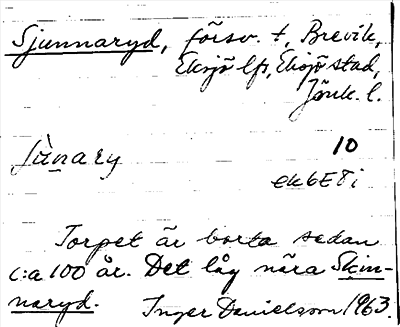 Sjunnaryd, försv. t, Brevik,
Eksjö lfs, Eksjö stad,
Jönk. l.
jùnary 10
ek6E8i
Torpet är borta sedan
c:a 100 år. Det låg nära Skin-
naryd. Inger Danielsson 1963.